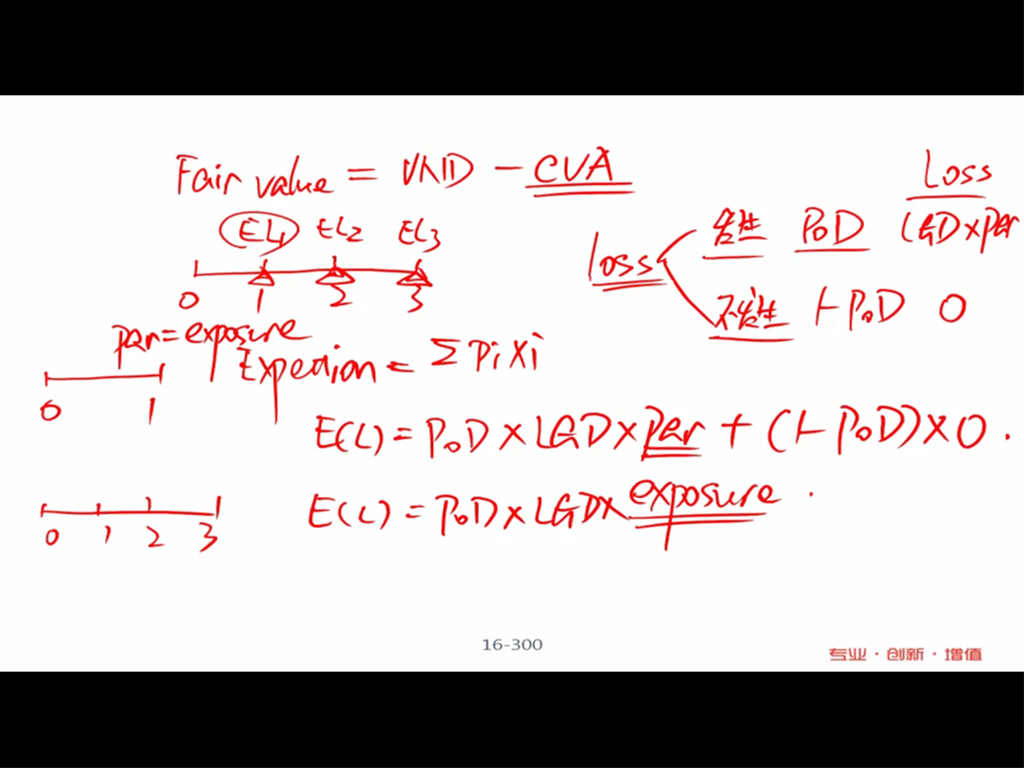 Fair value = VND - CVA
EL1 EL2 EL3
0 1 2 3
par = exposure
0 1
Expection = Σ Pi Xi
Loss
loss
发生 PoD LGD×par
不发生 1-PoD 0
E(L) = PoD × LGD × par + (1-PoD) × 0.
E(L) = PoD × LGD × exposure.
0 1 2 3
16-300
专业·创新·增值